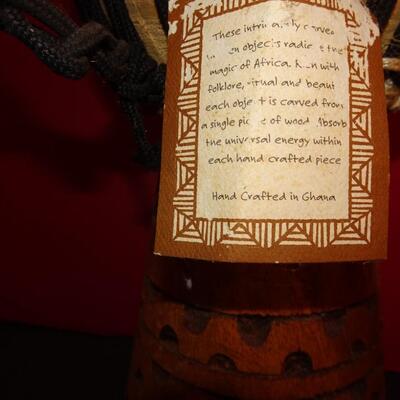 These intricately carved
wooden objects radiate the
magic of Africa. Rich with
folklore, ritual and beauty
each object is carved from
a single piece of wood. Absorb
the universal energy within
each hand crafted piece
Hand Crafted in Ghana